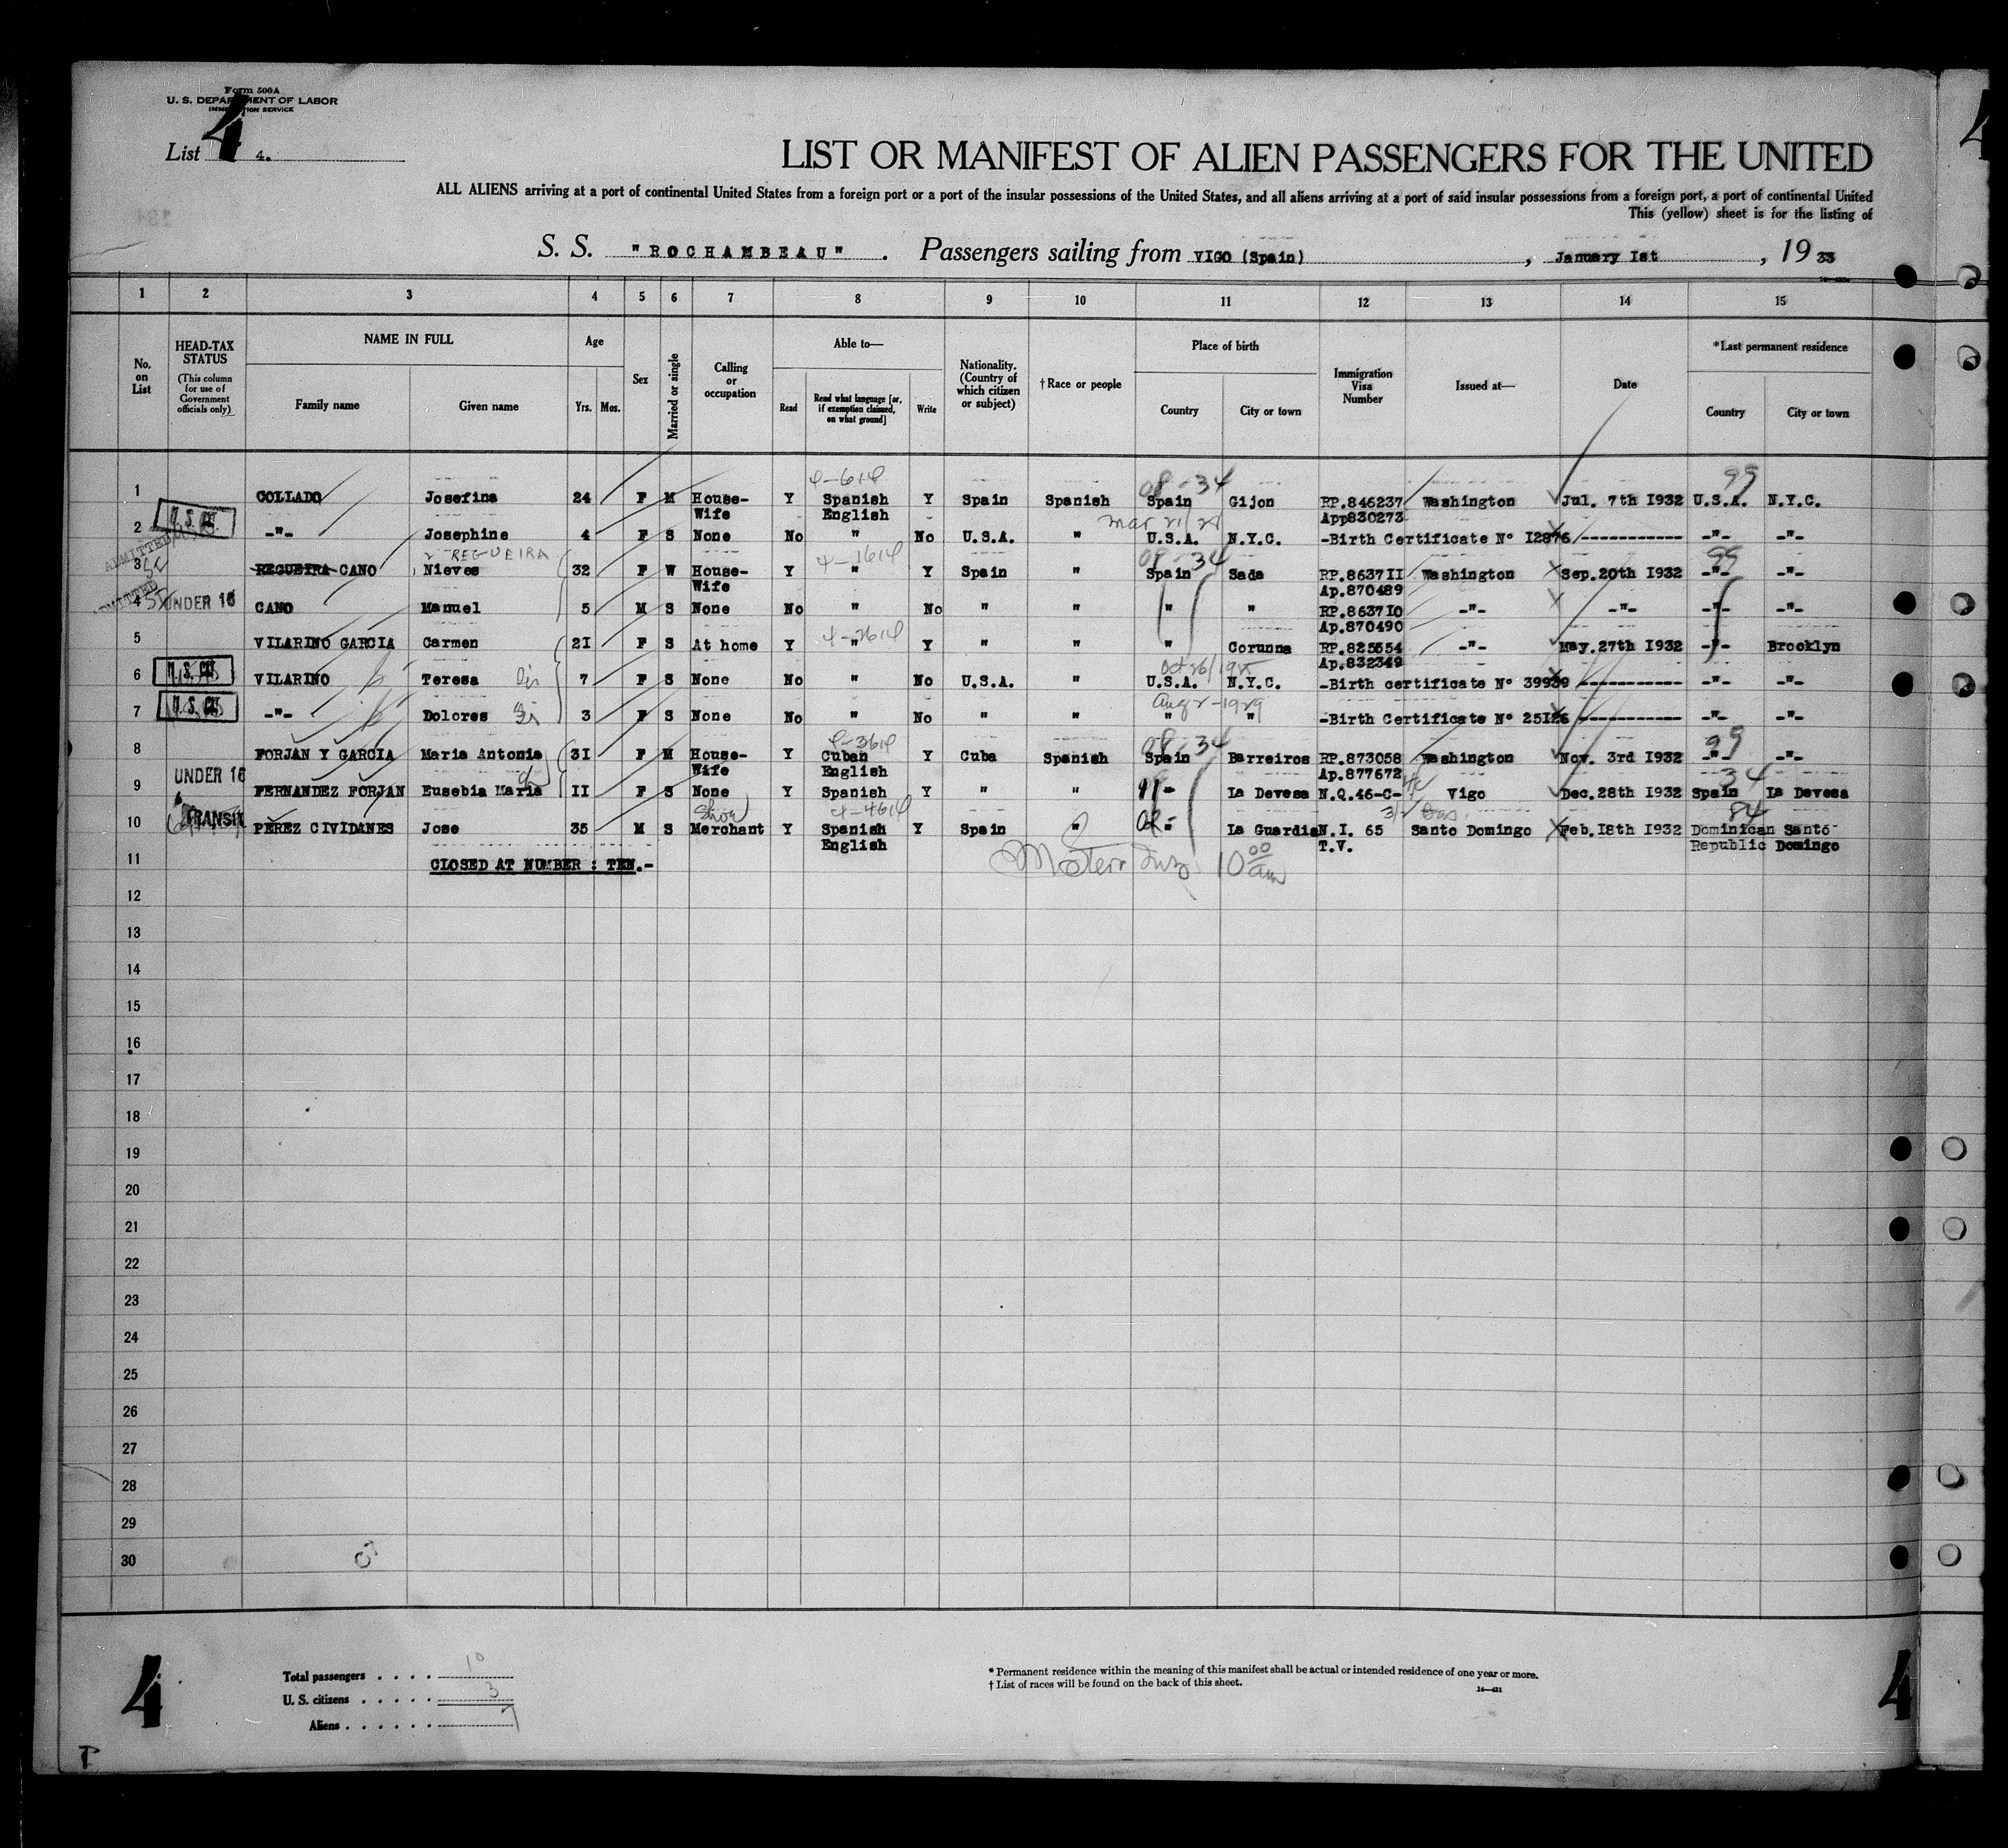 Form 500A
U. S. DEPARTMENT OF LABOR
IMMIGRATION SERVICE
List 4 4.
LIST OR MANIFEST OF ALIEN PASSENGERS FOR THE UNITED
ALL ALIENS arriving at a port of continental United States from a foreign port or a port of the insular possessions of the United States, and all aliens arriving at a port of said insular possessions from a foreign port, a port of continental United
This (yellow) sheet is for the listing of
S. S. "ROCHAMBEAU" . Passengers sailing from VIGO (Spain) , January Ist , 19 33
1 2 3 4 5 6 7 8 9 10 11 12 13 14 15
No. on List
HEAD-TAX STATUS (This column for use of Government officials only)
NAME IN FULL
Family name Given name
Age
Yrs. Mos.
Sex
Married or single
Calling or occupation
Able to—
Read Read what language [or, if exemption claimed, on what ground] Write
Nationality. (Country of which citizen or subject)
† Race or people
Place of birth
Country City or town
Immigration Visa Number
Issued at—
Date
*Last permanent residence
Country City or town
4-614 08-34 99
1 COLLADO Josefina 24 F M House- Y Spanish Y Spain Spanish Spain Gijon RP.846237 Washington Jul. 7th I932 U.S.A. N.Y.C.
Wife English App830273
U.S. CIT.
2 -"- Josephine 4 F S None No " No U.S.A. " U.S.A. N.Y.C. -Birth Certificate N° I2876 ----------- -"- -"-
ADMITTED REGUEIRA 4-1614 08-34 99
3 REGUEIRA CANO Nieves 32 F W House- Y " Y Spain " Spain Sada RP.8637II Washington Sep.20th I932 -"- -"-
Wife Ap.870489
ADMITTED
4 UNDER 16 CANO Manuel 5 M S None No " No " " " " RP.8637I0 -"- -"- -"- -"-
Ap.870490
5 VILARINO GARCIA Carmen 2I F S At home Y " Y " " " Corunna RP.825554 -"- May.27th I932 -"- Brooklyn
Ap.832349
U.S. CIT. Oct 26/1925
6 VILARINO Teresa 7 F S None No " No U.S.A. " U.S.A. N.Y.C. -Birth certificate N° 39939 ----------- -"- -"-
U.S. CIT. Aug 2-1929
7 -"- Dolores 3 F S None No " No " " " " -Birth Certificate N° 25I26 ----------- -"- -"-
4-3614 08-34 99
8 FORJAN Y GARCIA Maria Antonia 3I F M House- Y Cuban Y Cuba Spanish Spain Barreiros RP.873058 Washington Nov. 3rd I932 -"- -"-
Wife English Ap.877672
UNDER 16 34
9 FERNANDEZ FORJAN Eusebia Maria II F S None Y Spanish Y " " " La Devesa N.Q.46-C- Vigo Dec.28th I932 Spain La Devesa
TRANSIT Show 4-4614 84
10 PEREZ CIVIDANES Jose 35 M S Merchant Y Spanish Y Spain " " La Guardia N.I. 65 Santo Domingo Feb.I8th I932 Dominican Santo
English T.V. Republic Domingo
11 CLOSED AT NUMBER : TEN.- 10 00 am
12
13
14
15
16
17
18
19
20
21
22
23
24
25
26
27
28
29
30
4 4
Total passengers . . . . 10
U. S. citizens . . . . . 3
Aliens . . . . . . 7
* Permanent residence within the meaning of this manifest shall be actual or intended residence of one year or more.
† List of races will be found on the back of this sheet.